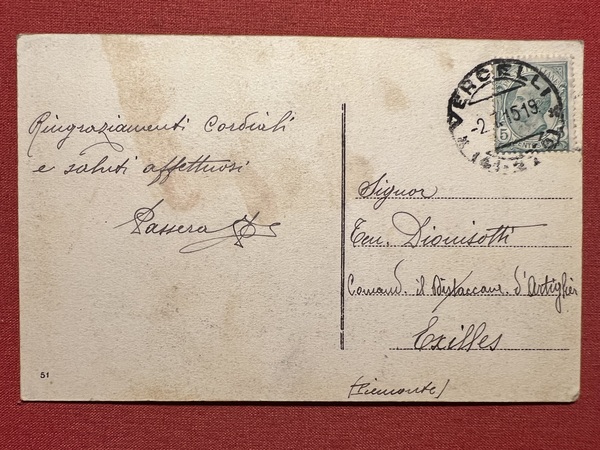 Ringraziamenti Cordiali
e saluti affettuosi
Passera
51
VERCELLI
5
Signor
Ten. Dionisotti
Comand. il Distaccam. d'Artiglier
Exilles
(Piemonte)